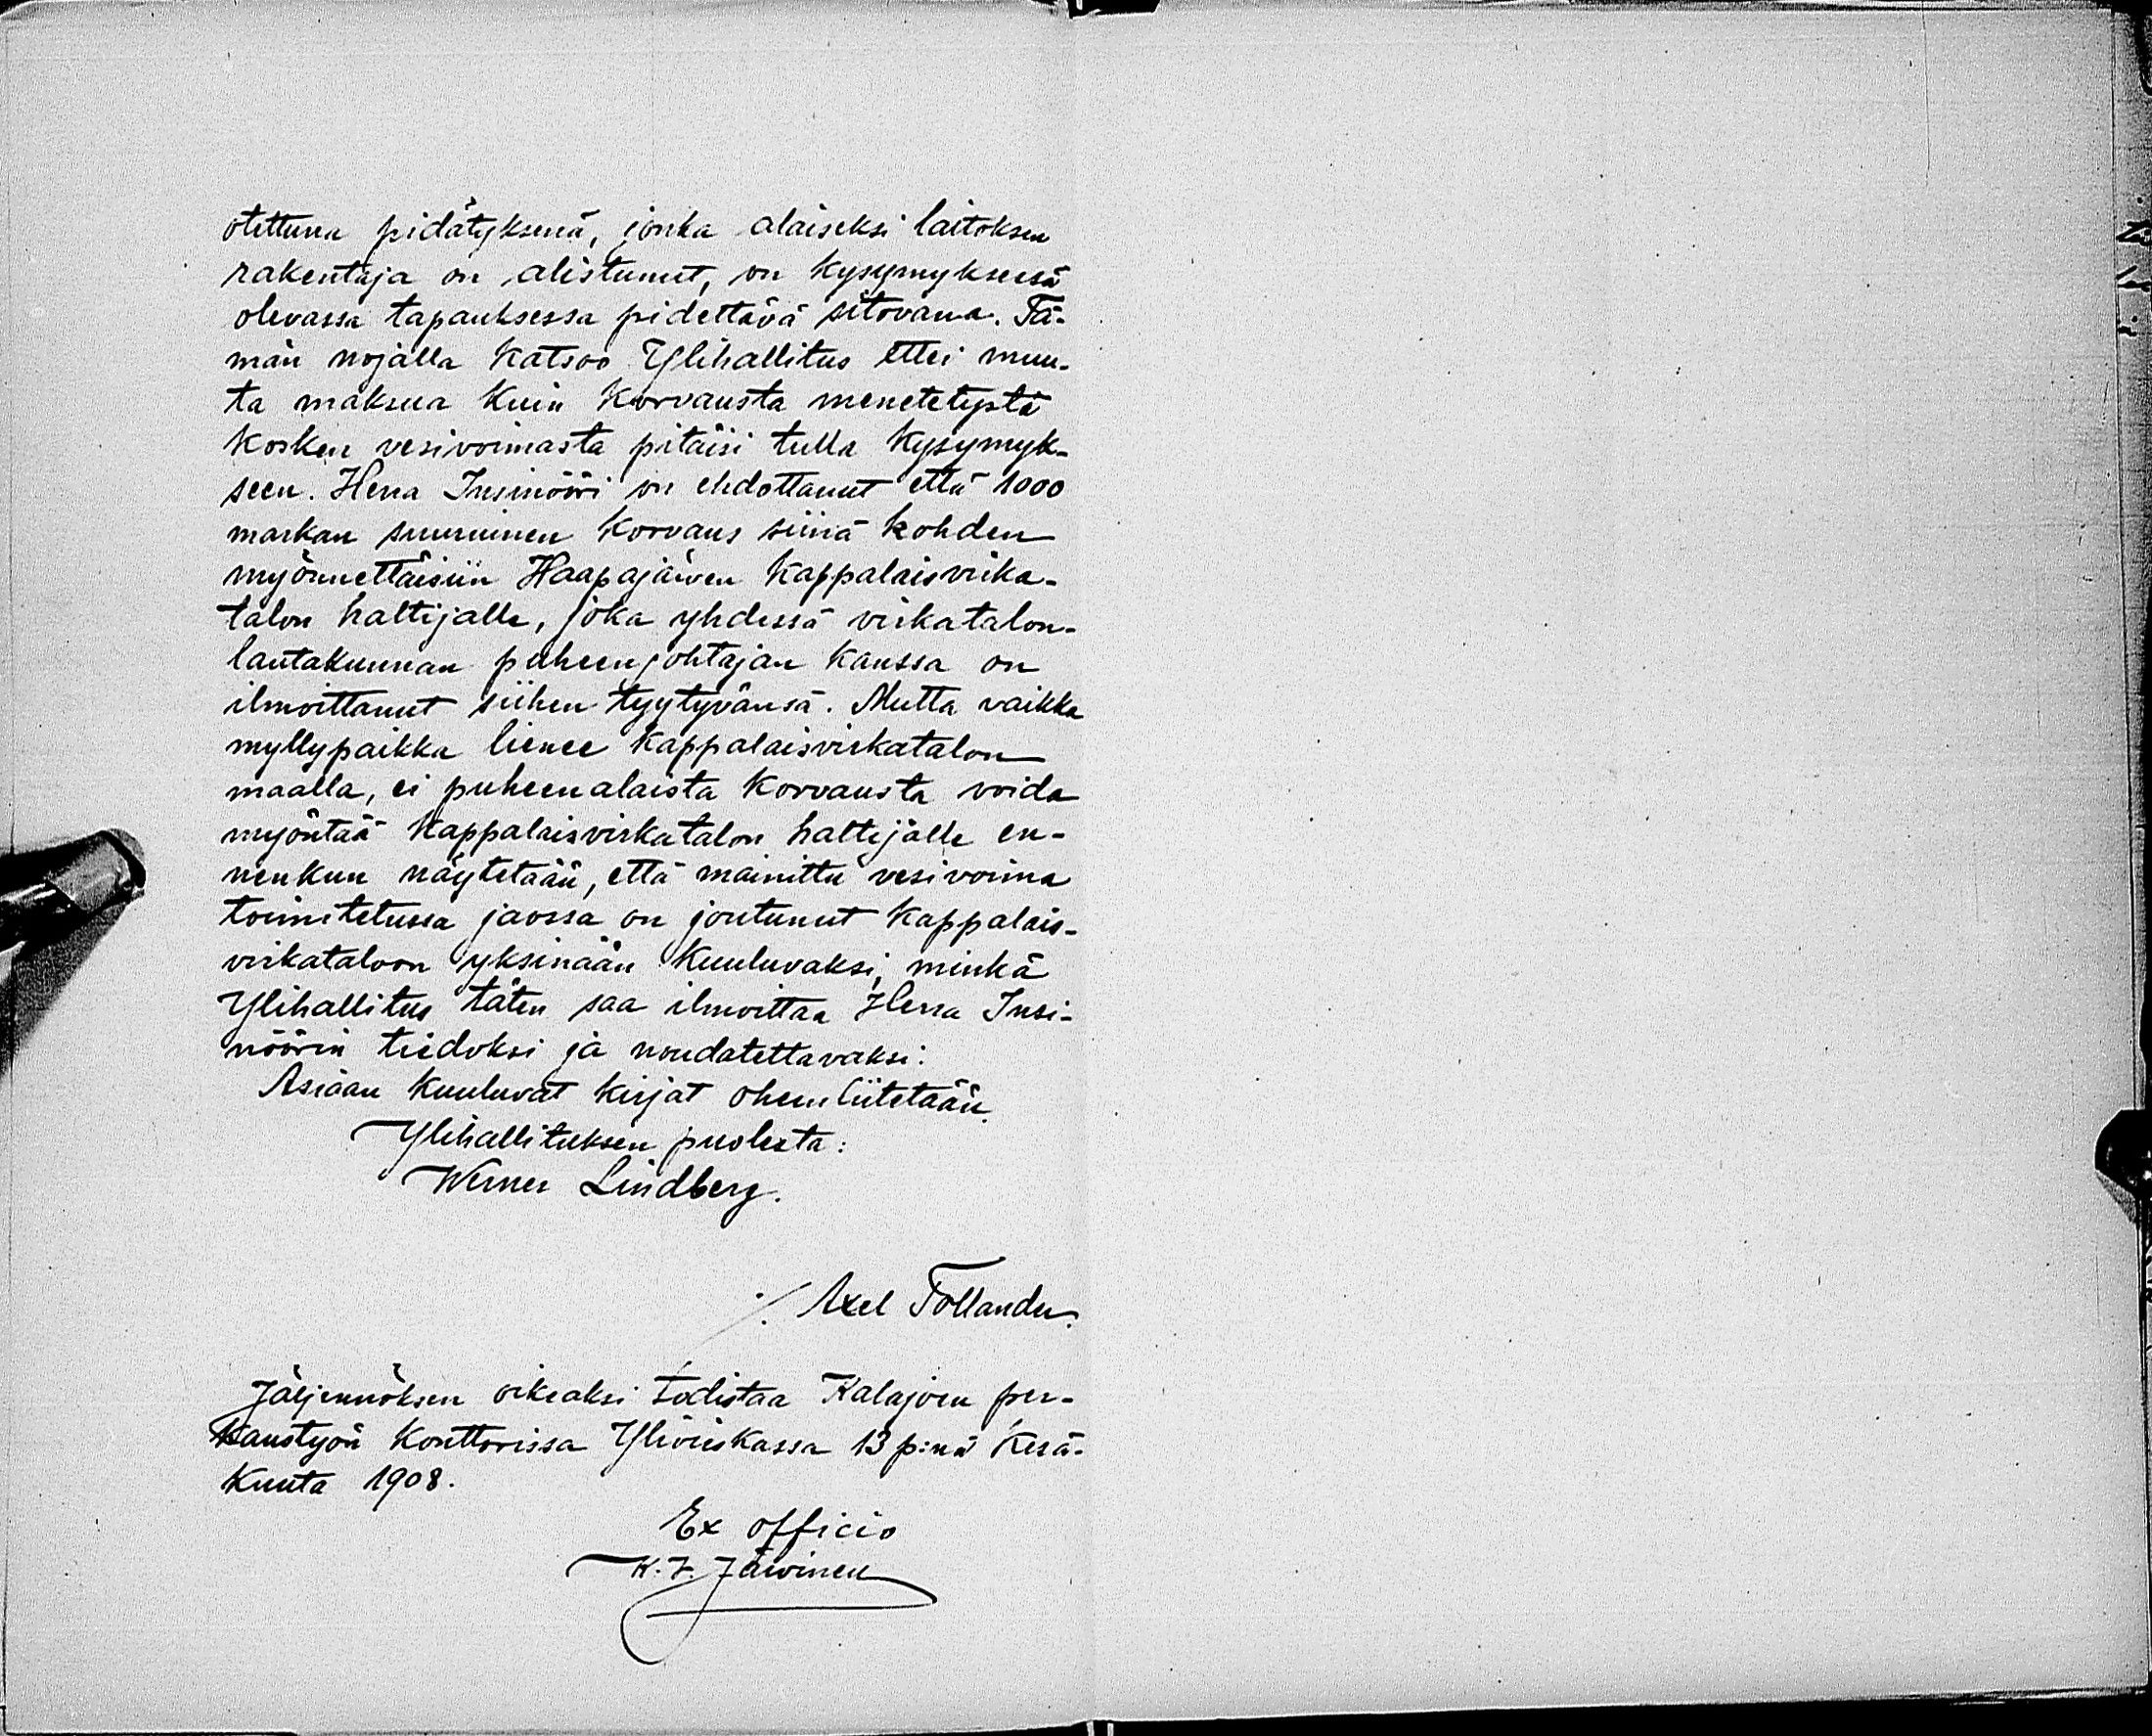 otettuna pidätyksenä, jonka alaiseksi laitoksen
rakentaja on alistunut, on kysymyksessä
olevassa tapauksessa pidettävä sitovana. Tä-
män nojalla katsoo Ylihallitus ettei muu-
ta maksua kuin korvausta menetetystä
kosken vesivoimasta pitäisi tulla kysymyk-
seen. Herra Insinööri on ehdottanut että 1000
markan suuruinen korvaus siinä kohden
myönnettäisiin Haapajärven kappalaisvirka-
talon haltijalle, joka yhdessä virkatalon-
lautakunnan puheenjohtajan kanssa on
ilmoittanut siihen tyytyvänsä. Mutta vaikka
myllypaikka lienee kappalaisvirkatalon
maalla, ei puheenalaista korvausta voida
myöntää kappalaisvirkatalon haltijalle en-
nenkun näytetään, että mainittu vesivoima
toimitetussa jaossa on joutunut kappalais-
virkataloon yksinään kuuluvaksi, minkä
Ylihallitus täten saa ilmoittaa Herra Insi-
nöörin tiedoksi ja noudatettavaksi.
Asiaan kuuluvat kirjat oheenliitetään.
Ylihallituksen puolesta:
Werner Lindberg.
./. Axel Tollander.
Jäljennöksen oikeaksi todistaa Kalajoen per-
kaustyön konttorissa Ylivieskassa 13 p:nä Kesä-
kuuta 1908.
Ex officio
K. J. Järvinen